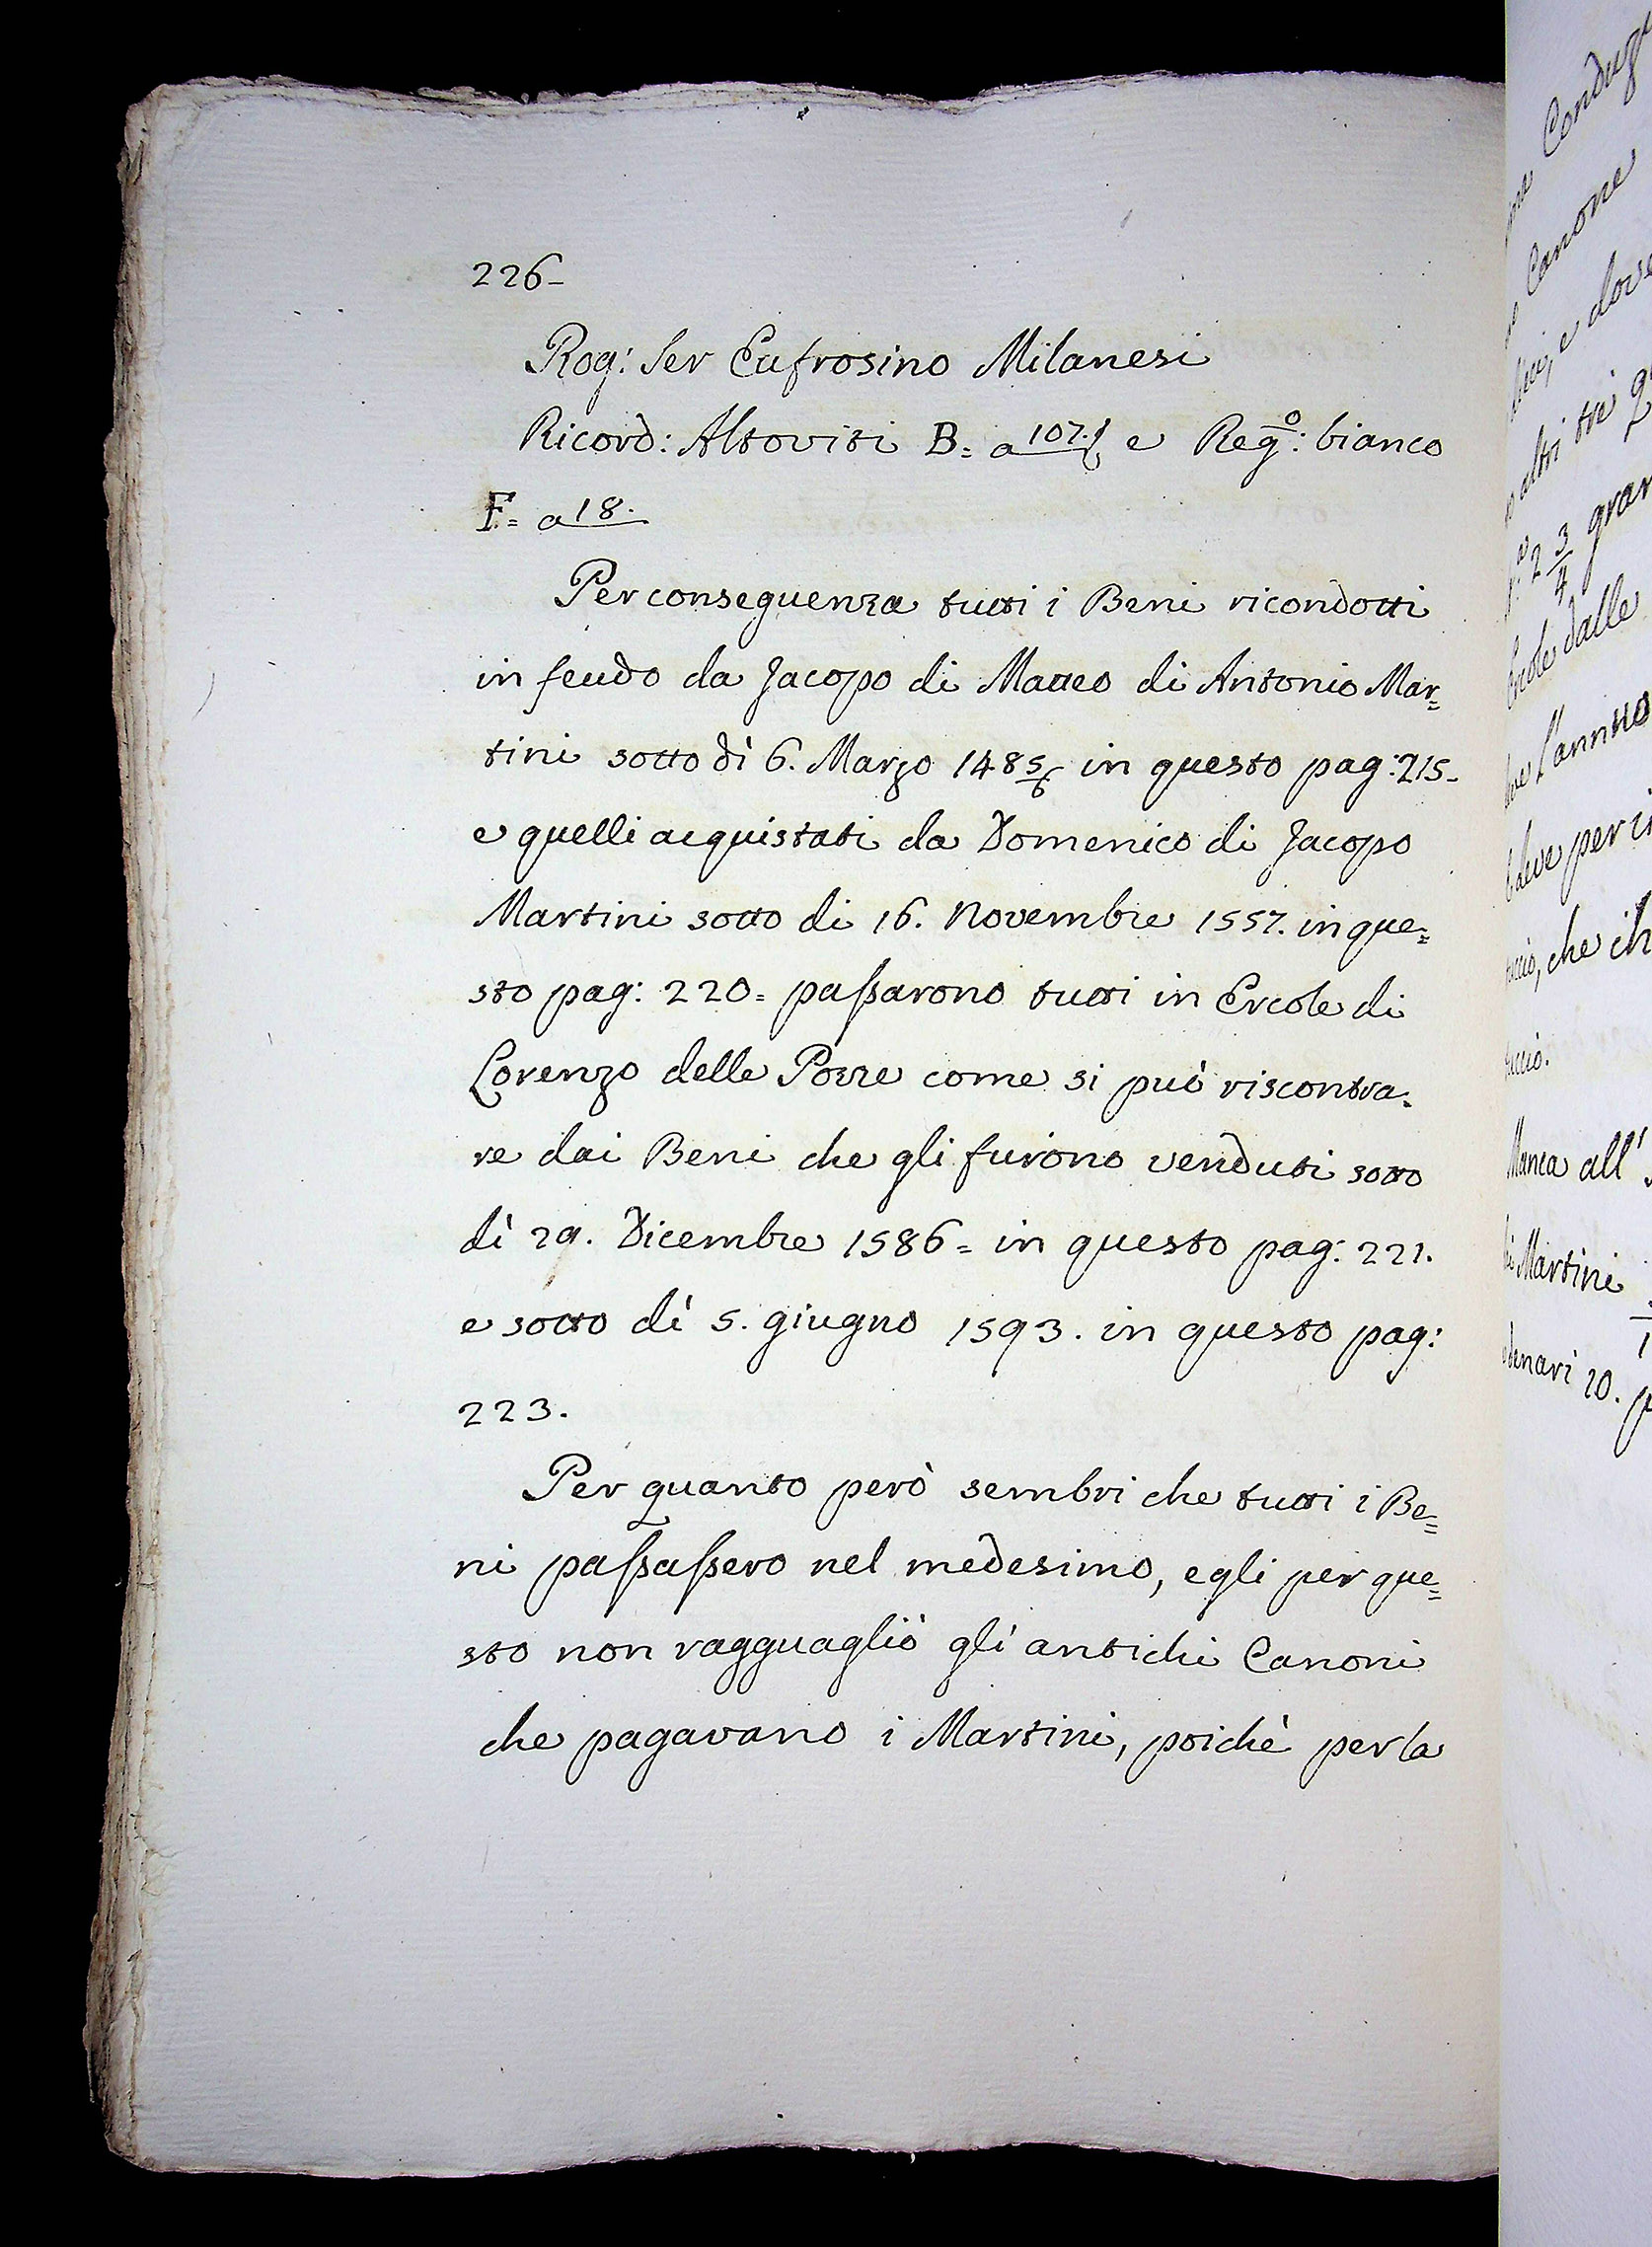 226-
Rog: Ser Eufrosino Milanesi
Ricord: Altoviti B= a 107. e Reg:º bianco
F= a 18.
Per conseguenza tutti i Beni ricondotti
in feudo da Jacopo di Matteo di Antonio Mar=
tini sotto dì 6. Marzo 148 5/6 in questo pag: 215-
e quelli acquistati da Domenico di Jacopo
Martini sotto di 16. Novembre 1557. in que=
sto pag: 220= paßarono tutti in Ercole di
Lorenzo delle Pozze come si può riscontra=
re dai Beni che gli furono venduti sotto
dì 29. Dicembre 1586= in questo pag: 221.
e sotto dì 5. giugno 1593. in questo pag:
223.
Per quanto però sembri che tutti i Be=
ni paßaßero nel medesimo, egli per que=
sto non ragguagliò gli antichi Canoni
che pagavano i Martini, poichè per la
Canone
altri tre
2 3/4
dalle
l'annuo
per
che
all'
Martini
denari 20.